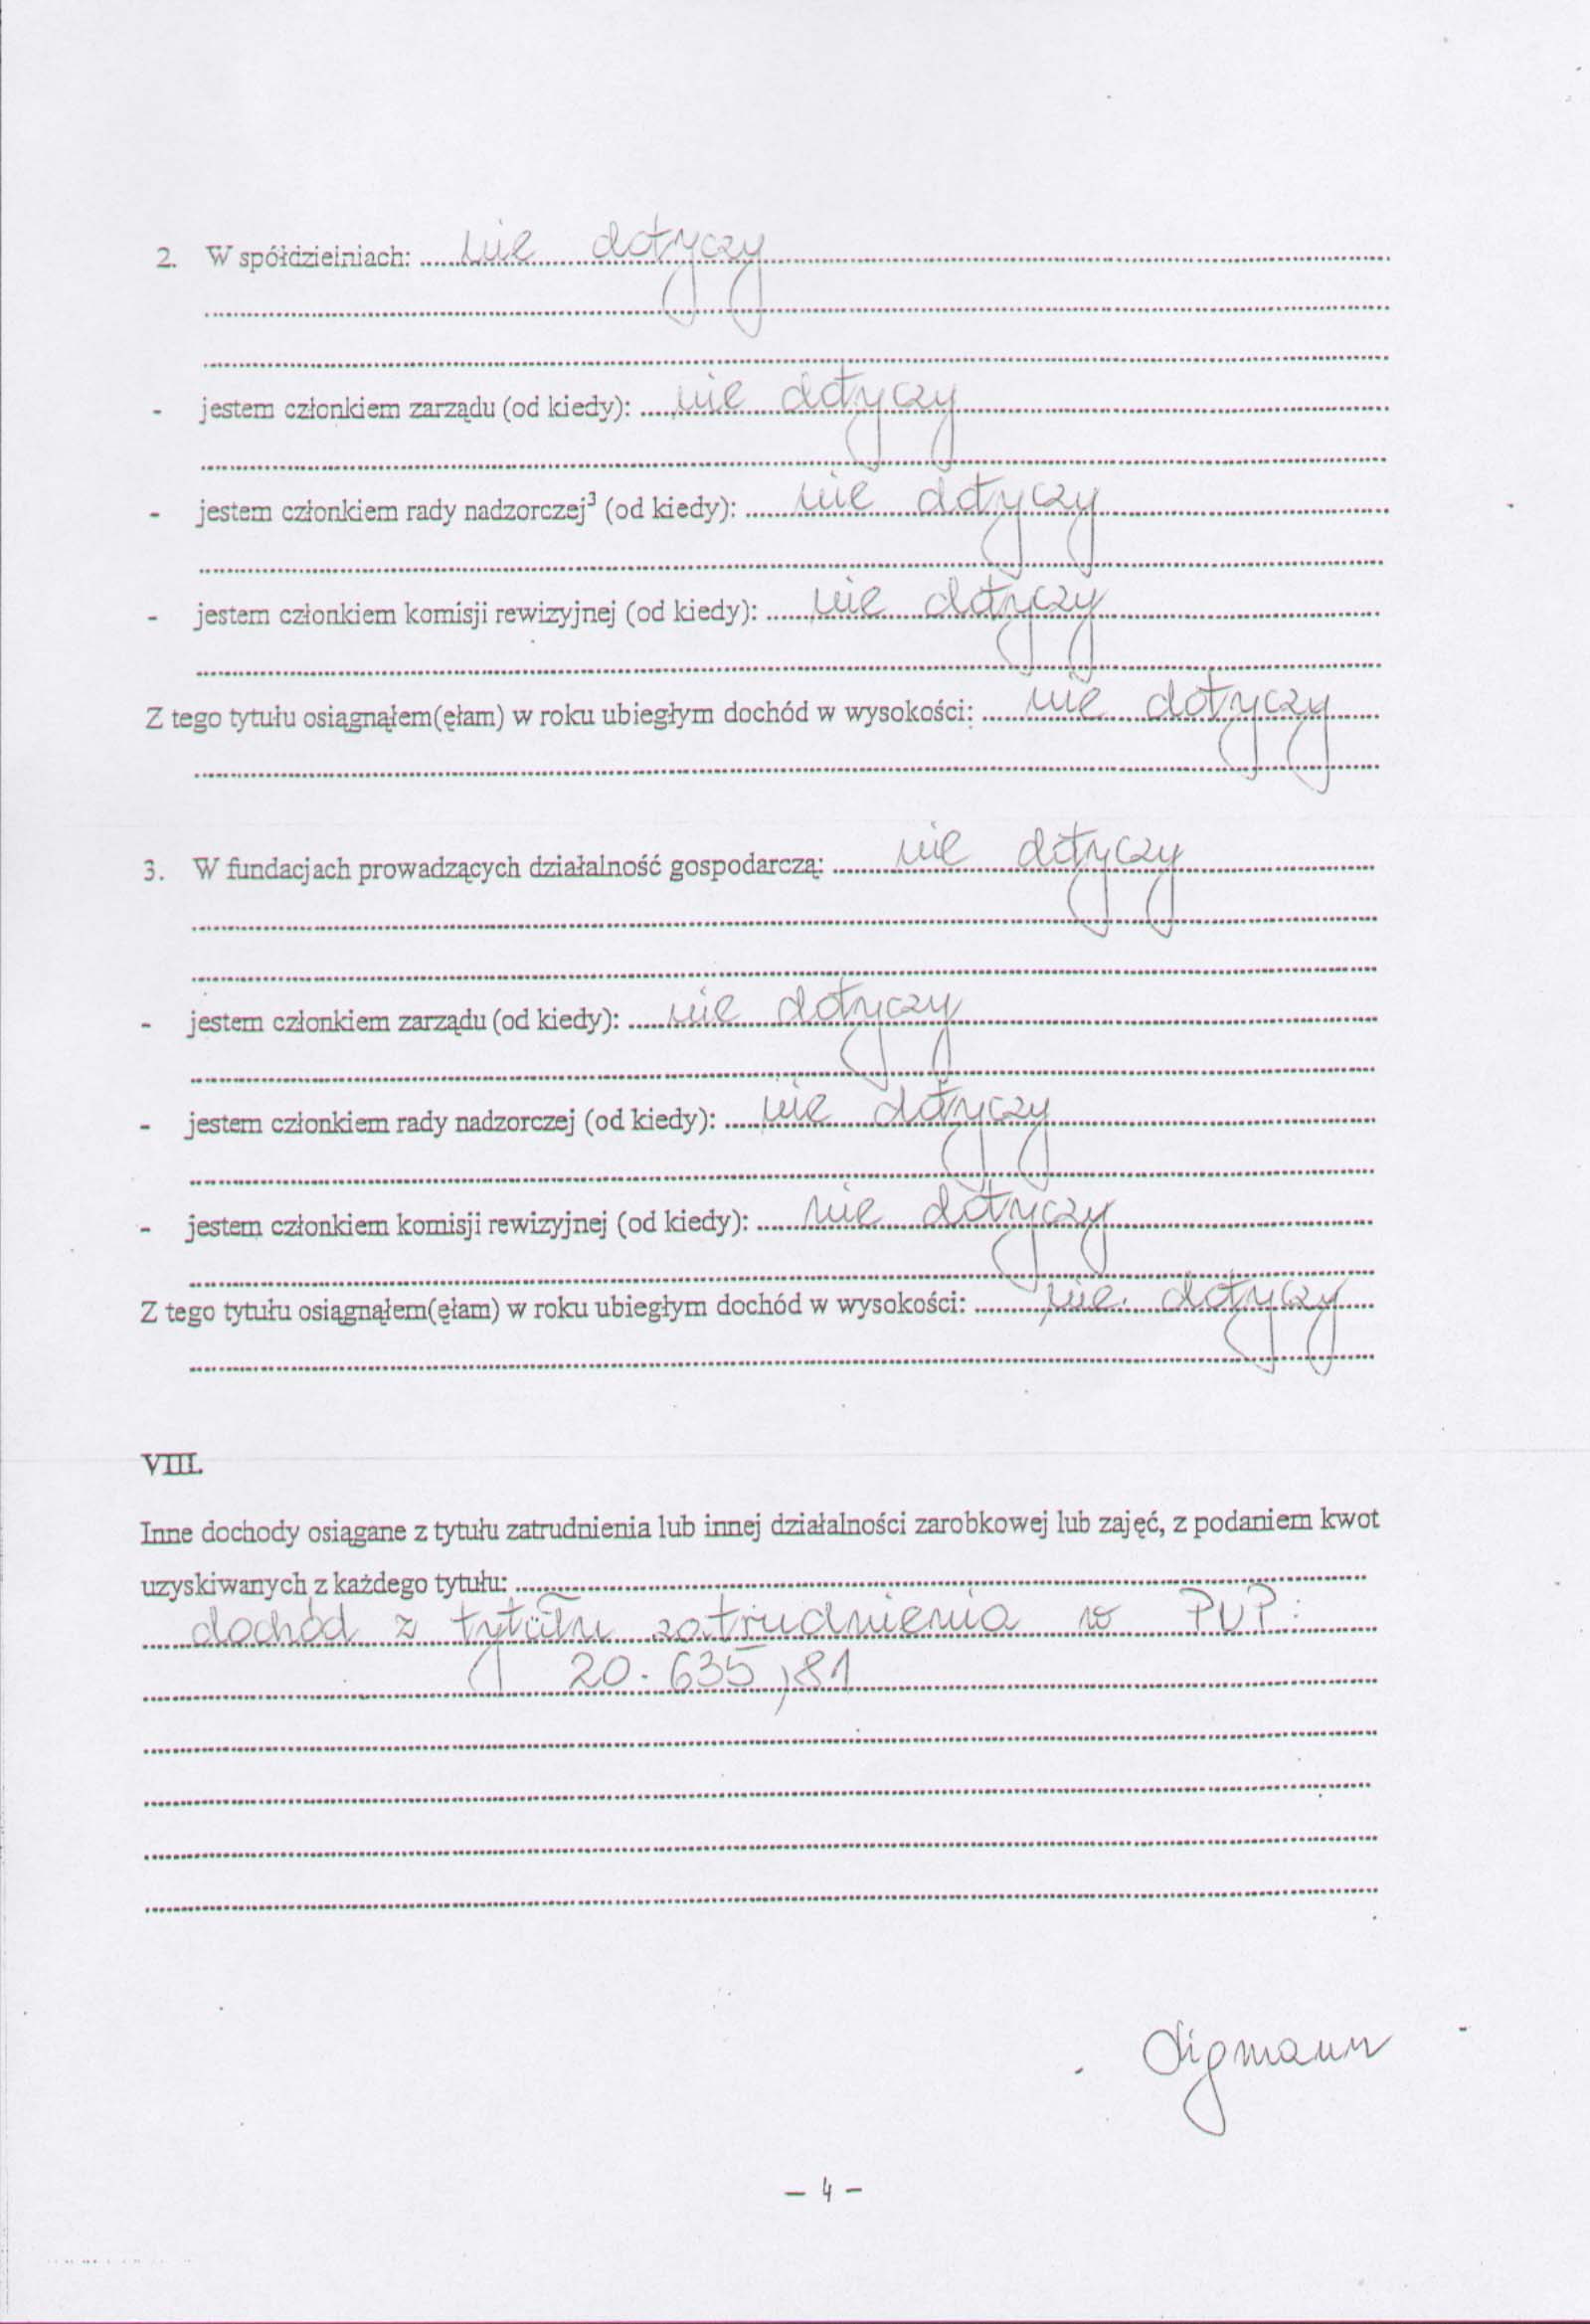 2. W spółdzielniach: nie dotyczy
- jestem członkiem zarządu (od kiedy): nie dotyczy
- jestem członkiem rady nadzorczej³ (od kiedy): nie dotyczy
- jestem członkiem komisji rewizyjnej (od kiedy): nie dotyczy
Z tego tytułu osiągnąłem(ęłam) w roku ubiegłym dochód w wysokości: nie dotyczy
3. W fundacjach prowadzących działalność gospodarczą: nie dotyczy
- jestem członkiem zarządu (od kiedy): nie dotyczy
- jestem członkiem rady nadzorczej (od kiedy): nie dotyczy
- jestem członkiem komisji rewizyjnej (od kiedy): nie dotyczy
Z tego tytułu osiągnąłem(ęłam) w roku ubiegłym dochód w wysokości: nie dotyczy
VIII.
Inne dochody osiągane z tytułu zatrudnienia lub innej działalności zarobkowej lub zajęć, z podaniem kwot
uzyskiwanych z każdego tytułu:
dochód z tytułu zatrudnienia w PUP:
20.635,81
- 4 -